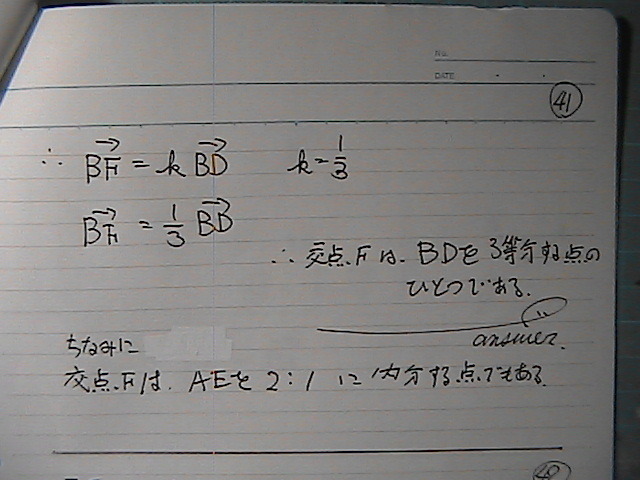 No.
DATE ・ ・
41
∴ BF→ = k BD→ k = 1/3
BF→ = 1/3 BD→
∴ 交点Fは、BDを3等分する点の
ひとつである。
answer.
ちなみに
交点Fは、AEを2:1に内分する点でもある。